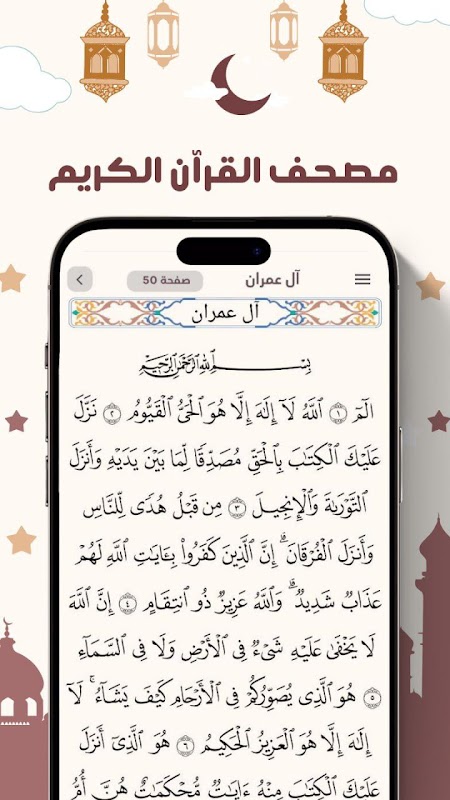 مصحف القرآن الكريم
آل عمران
صفحة 50
آل عمران
بِسْمِ ٱللَّهِ ٱلرَّحْمَٰنِ ٱلرَّحِيمِ
الٓمٓ ١ ٱللَّهُ لَآ إِلَٰهَ إِلَّا هُوَ ٱلْحَىُّ ٱلْقَيُّومُ ٢ نَزَّلَ
عَلَيْكَ ٱلْكِتَٰبَ بِٱلْحَقِّ مُصَدِّقًا لِّمَا بَيْنَ يَدَيْهِ وَأَنزَلَ
ٱلتَّوْرَىٰةَ وَٱلْإِنجِيلَ ٣ مِن قَبْلُ هُدًى لِّلنَّاسِ
وَأَنزَلَ ٱلْفُرْقَانَ ۗ إِنَّ ٱلَّذِينَ كَفَرُوا۟ بِـَٔايَٰتِ ٱللَّهِ لَهُمْ
عَذَابٌ شَدِيدٌ ۗ وَٱللَّهُ عَزِيزٌ ذُو ٱنتِقَامٍ ٤ إِنَّ ٱللَّهَ
لَا يَخْفَىٰ عَلَيْهِ شَىْءٌ فِى ٱلْأَرْضِ وَلَا فِى ٱلسَّمَآءِ
٥ هُوَ ٱلَّذِى يُصَوِّرُكُمْ فِى ٱلْأَرْحَامِ كَيْفَ يَشَآءُ ۚ لَآ
إِلَٰهَ إِلَّا هُوَ ٱلْعَزِيزُ ٱلْحَكِيمُ ٦ هُوَ ٱلَّذِىٓ أَنزَلَ
عَلَيْكَ ٱلْكِتَٰبَ مِنْهُ ءَايَٰتٌ مُّحْكَمَٰتٌ هُنَّ أُمُّ